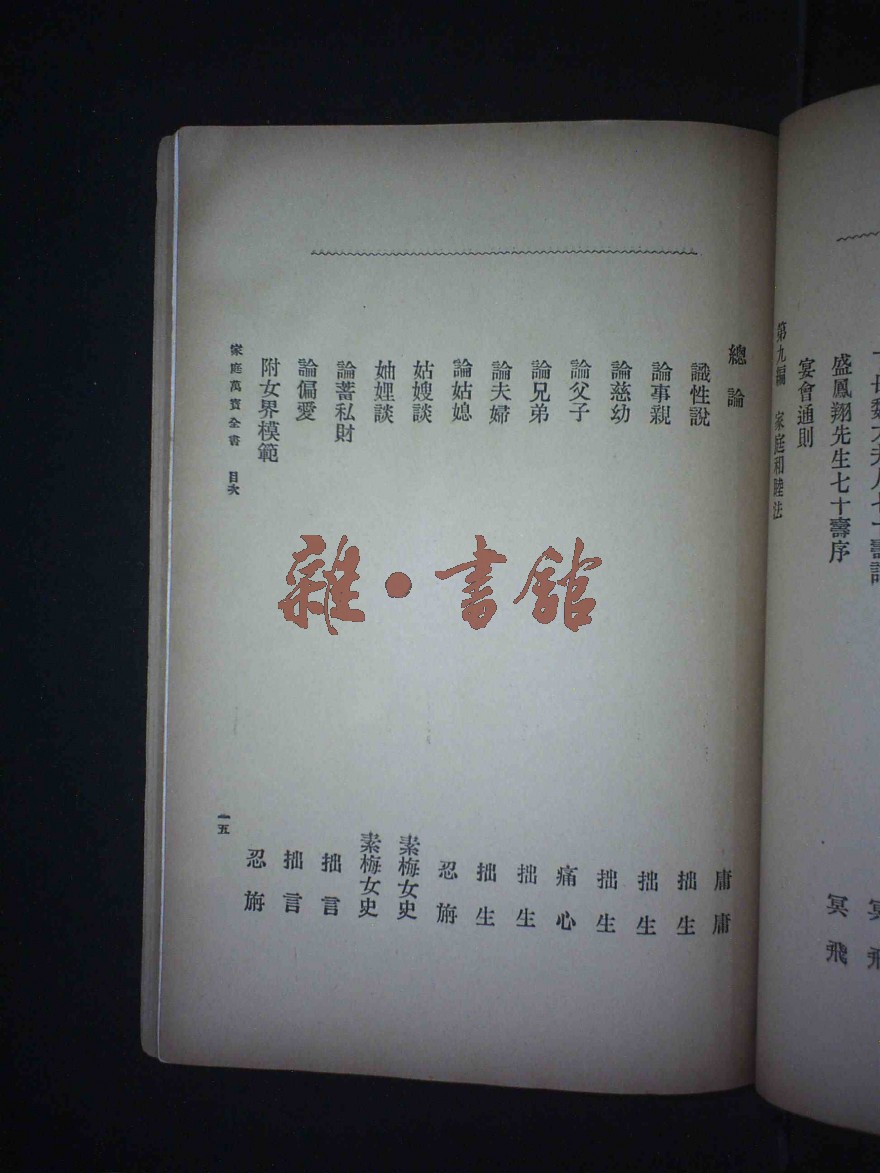 盛鳳翔先生七十壽序 冥飛
宴會通則
第九編 家庭和睦法
總論 庸庸
識性說 拙生
論事親 拙生
論慈幼 拙生
論父子 痛心
論兄弟 拙生
論夫婦 拙生
論姑媳 忍旃
姑嫂談 素梅女史
妯娌談 素梅女史
論蓄私財 拙言
論偏愛 拙言
附女界模範 忍旃
家庭萬寶全書 目次 一五
雜·書館